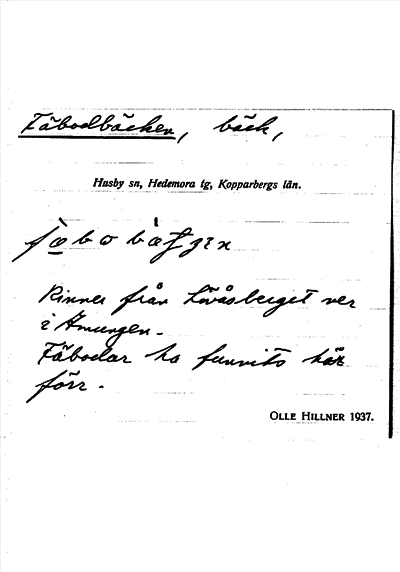 Fäbodbäcken, bäck,
Husby sn, Hedemora tg, Kopparbergs län.
Rinner från Lövåsberget ner
i Amungen.
Fäbodar ha funnits här
förr.
OLLE HILLNER 1937.